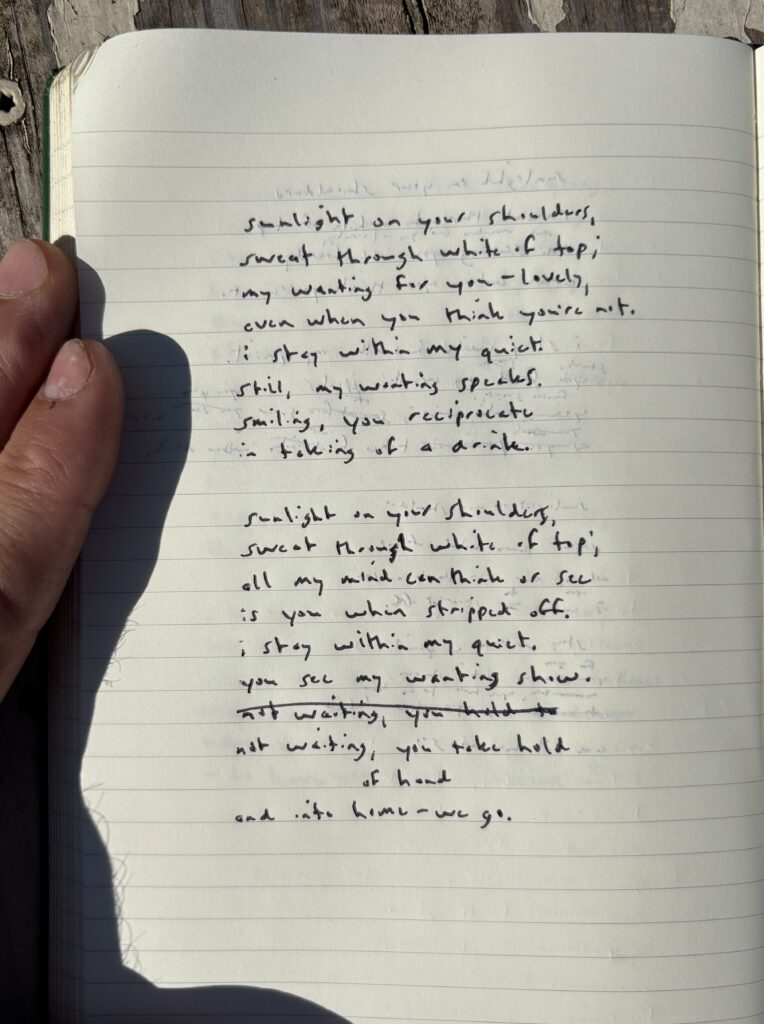 sunlight on your shoulders,
sweat through white of top;
my wanting for you – lovely,
even when you think you're not.
i stay within my quiet.
still, my wanting speaks.
smiling, you reciprocate
in taking of a drink.
sunlight on your shoulders,
sweat through white of top;
all my mind can think or see
is you when stripped off.
i stay within my quiet.
you see my wanting show.
not waiting, you hold to
not waiting, you take hold
of hand
and into home – we go.